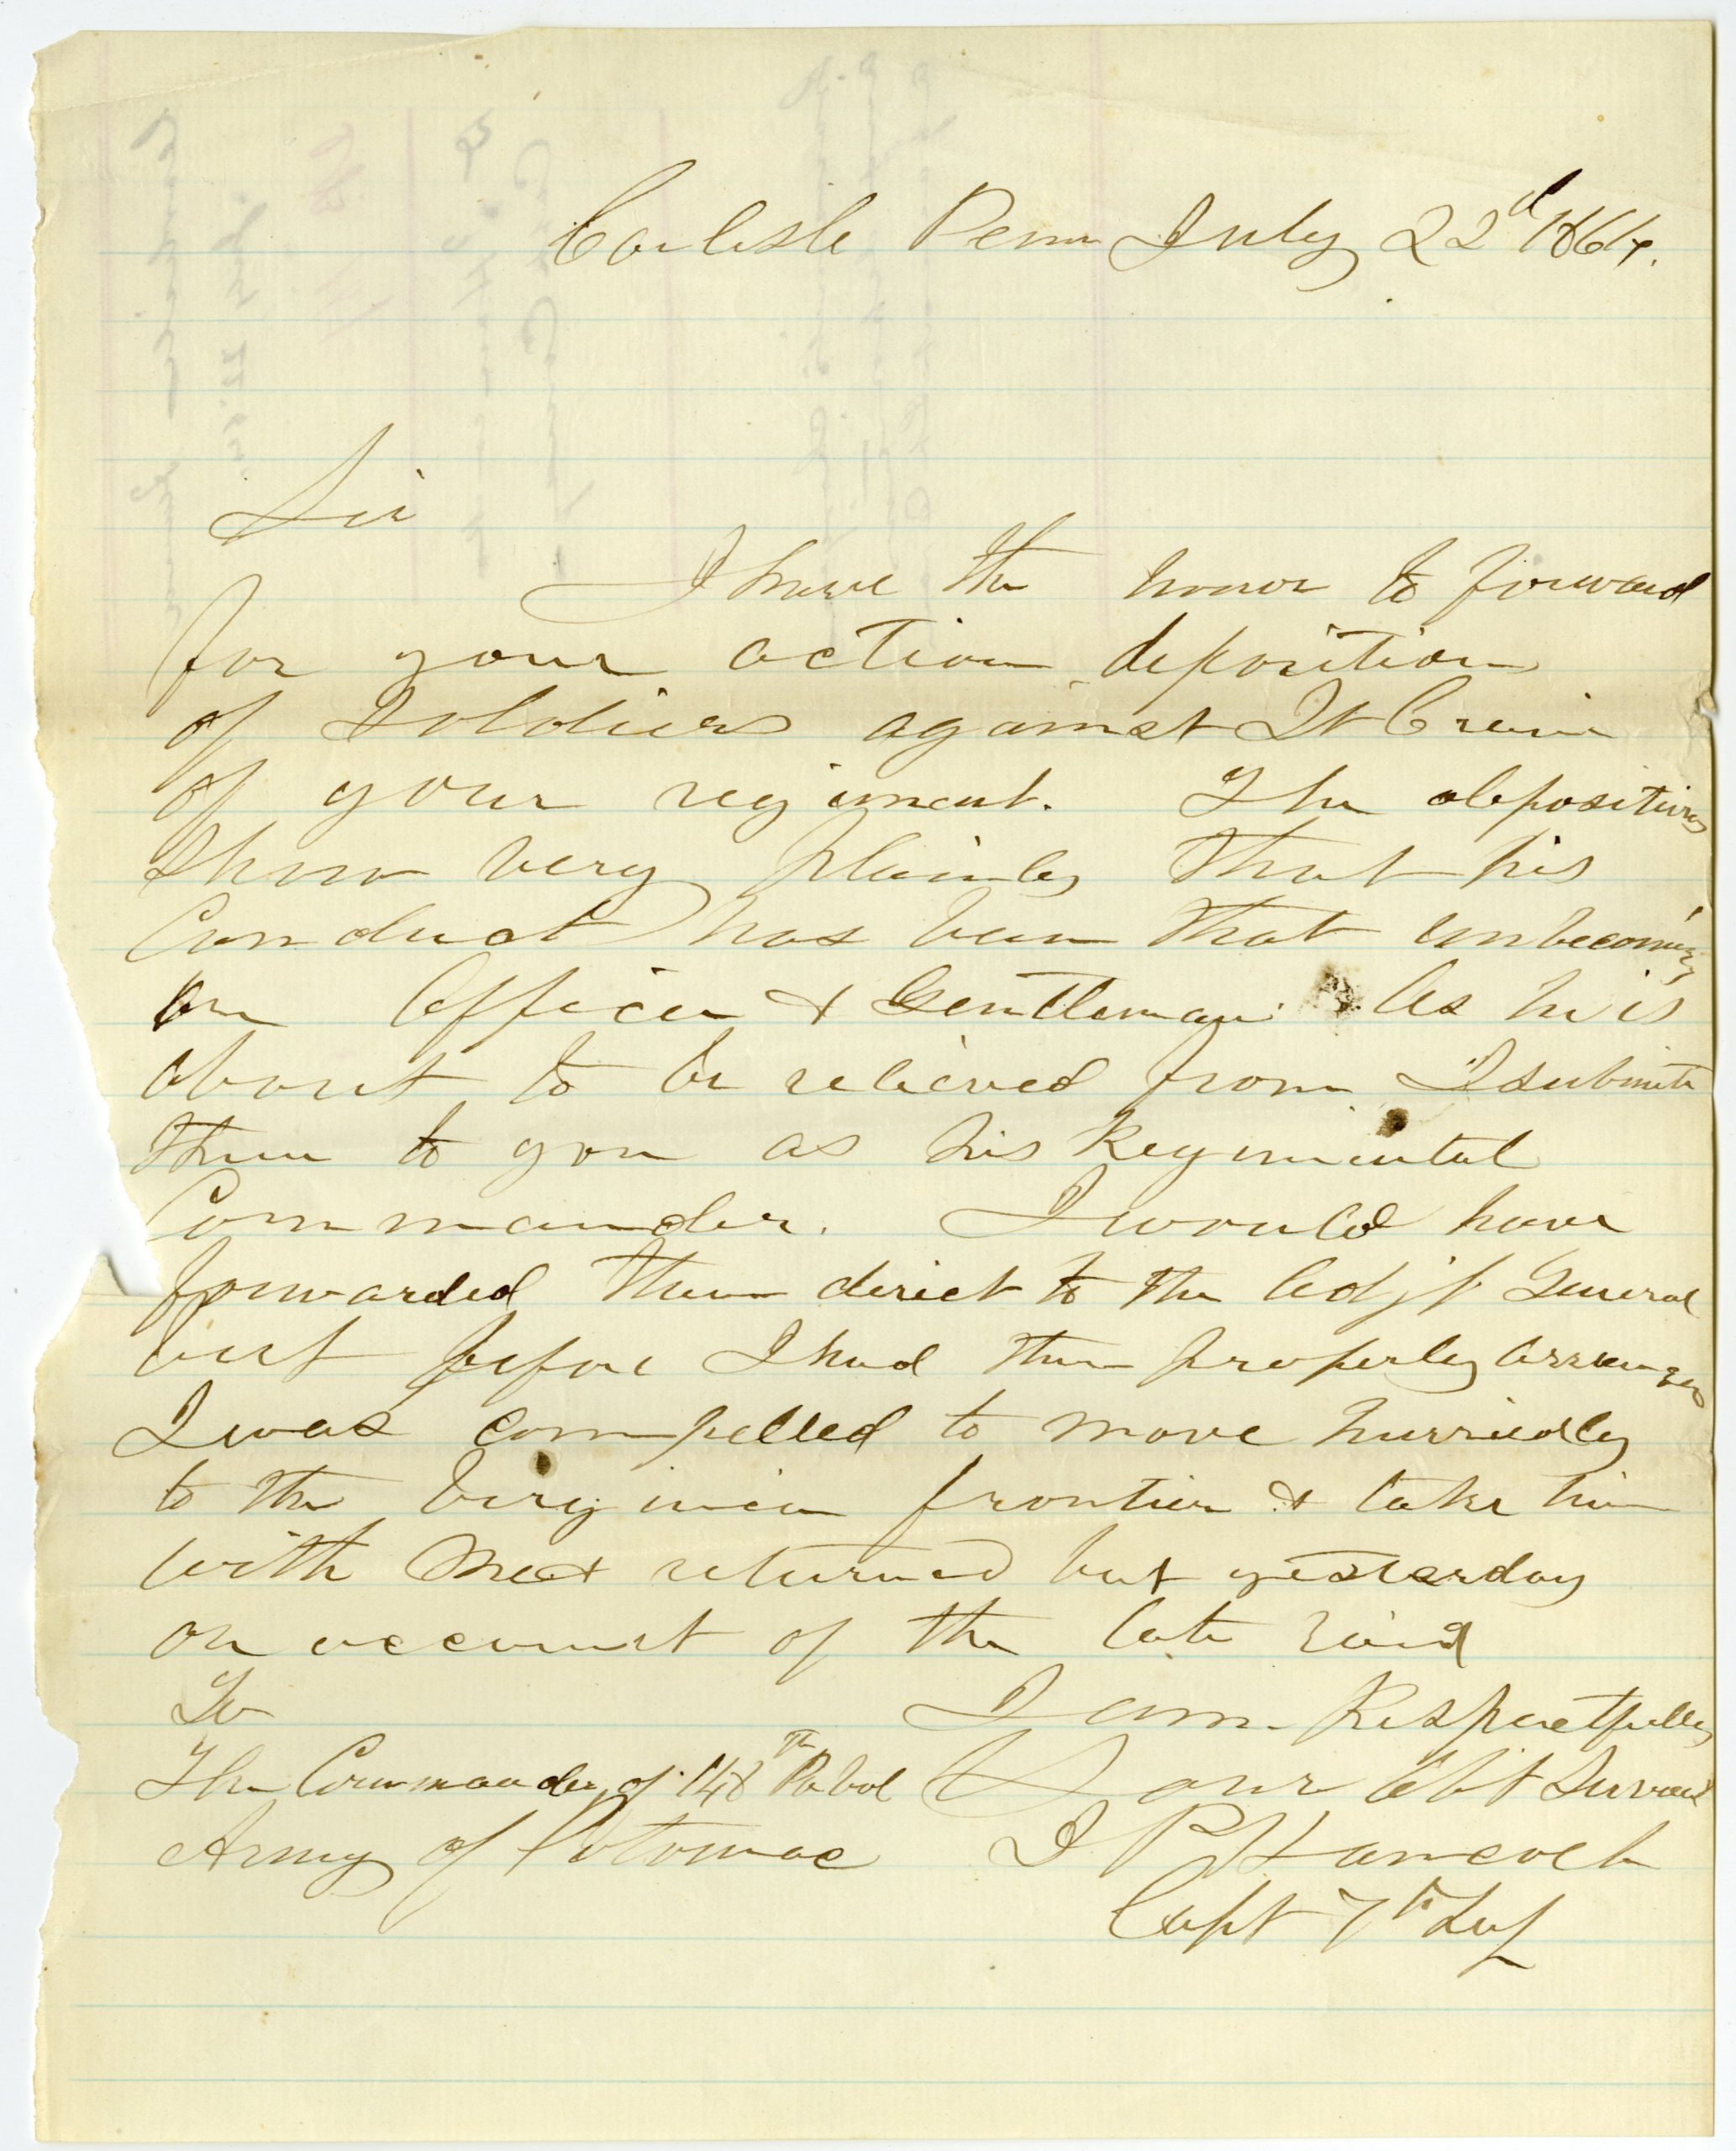 Carlisle Penn July 22d 1864.
Sir
I have the honor to forward
for your action deposition
of Soldiers against Lt
of your regiment. The depositions
Show very plainly that his
Conduct has been that unbecoming
an Officer & Gentleman. As he is
about to be relieved from I submit
them to you as his Regimental
Commander. I would have
forwarded them direct to the Adjt General
but before I had them properly arranged
I was compelled to move hurriedly
to the Virginia frontier & take him
with me & returned but yesterday
on account of the late raid
To
I am Respectfully
The Commander of 148th Pa Vol
Your Obt Servant
Army of Potomac
D P Hancock
Capt 7th Inf